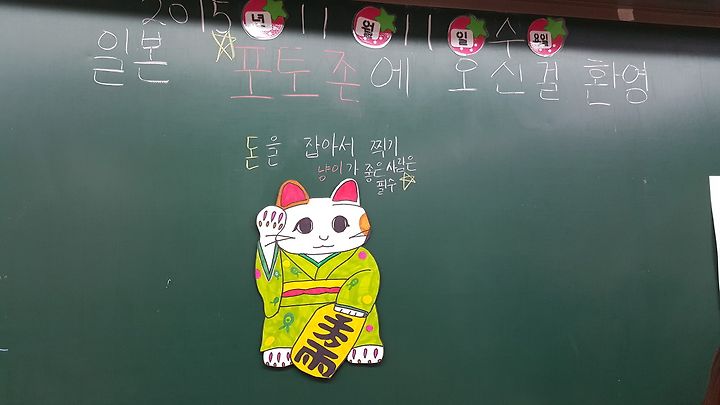 2015년 11월 11일 수요일
일본 포토존에 오신걸 환영
돈을 잡아서 찍기
냥이가 좋은 사람은
필수